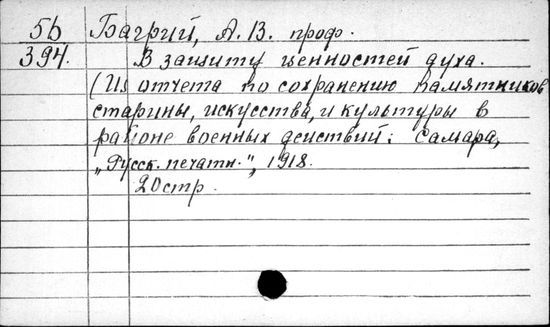 5б Багрий, А. В. проф.
394. В защиту ценностей духа.
(Из отчета по сохранению памятников
старины, искусства, и культуры в
районе военных действий: Самара,
„Русск. печатн.", 1918.
20стр.